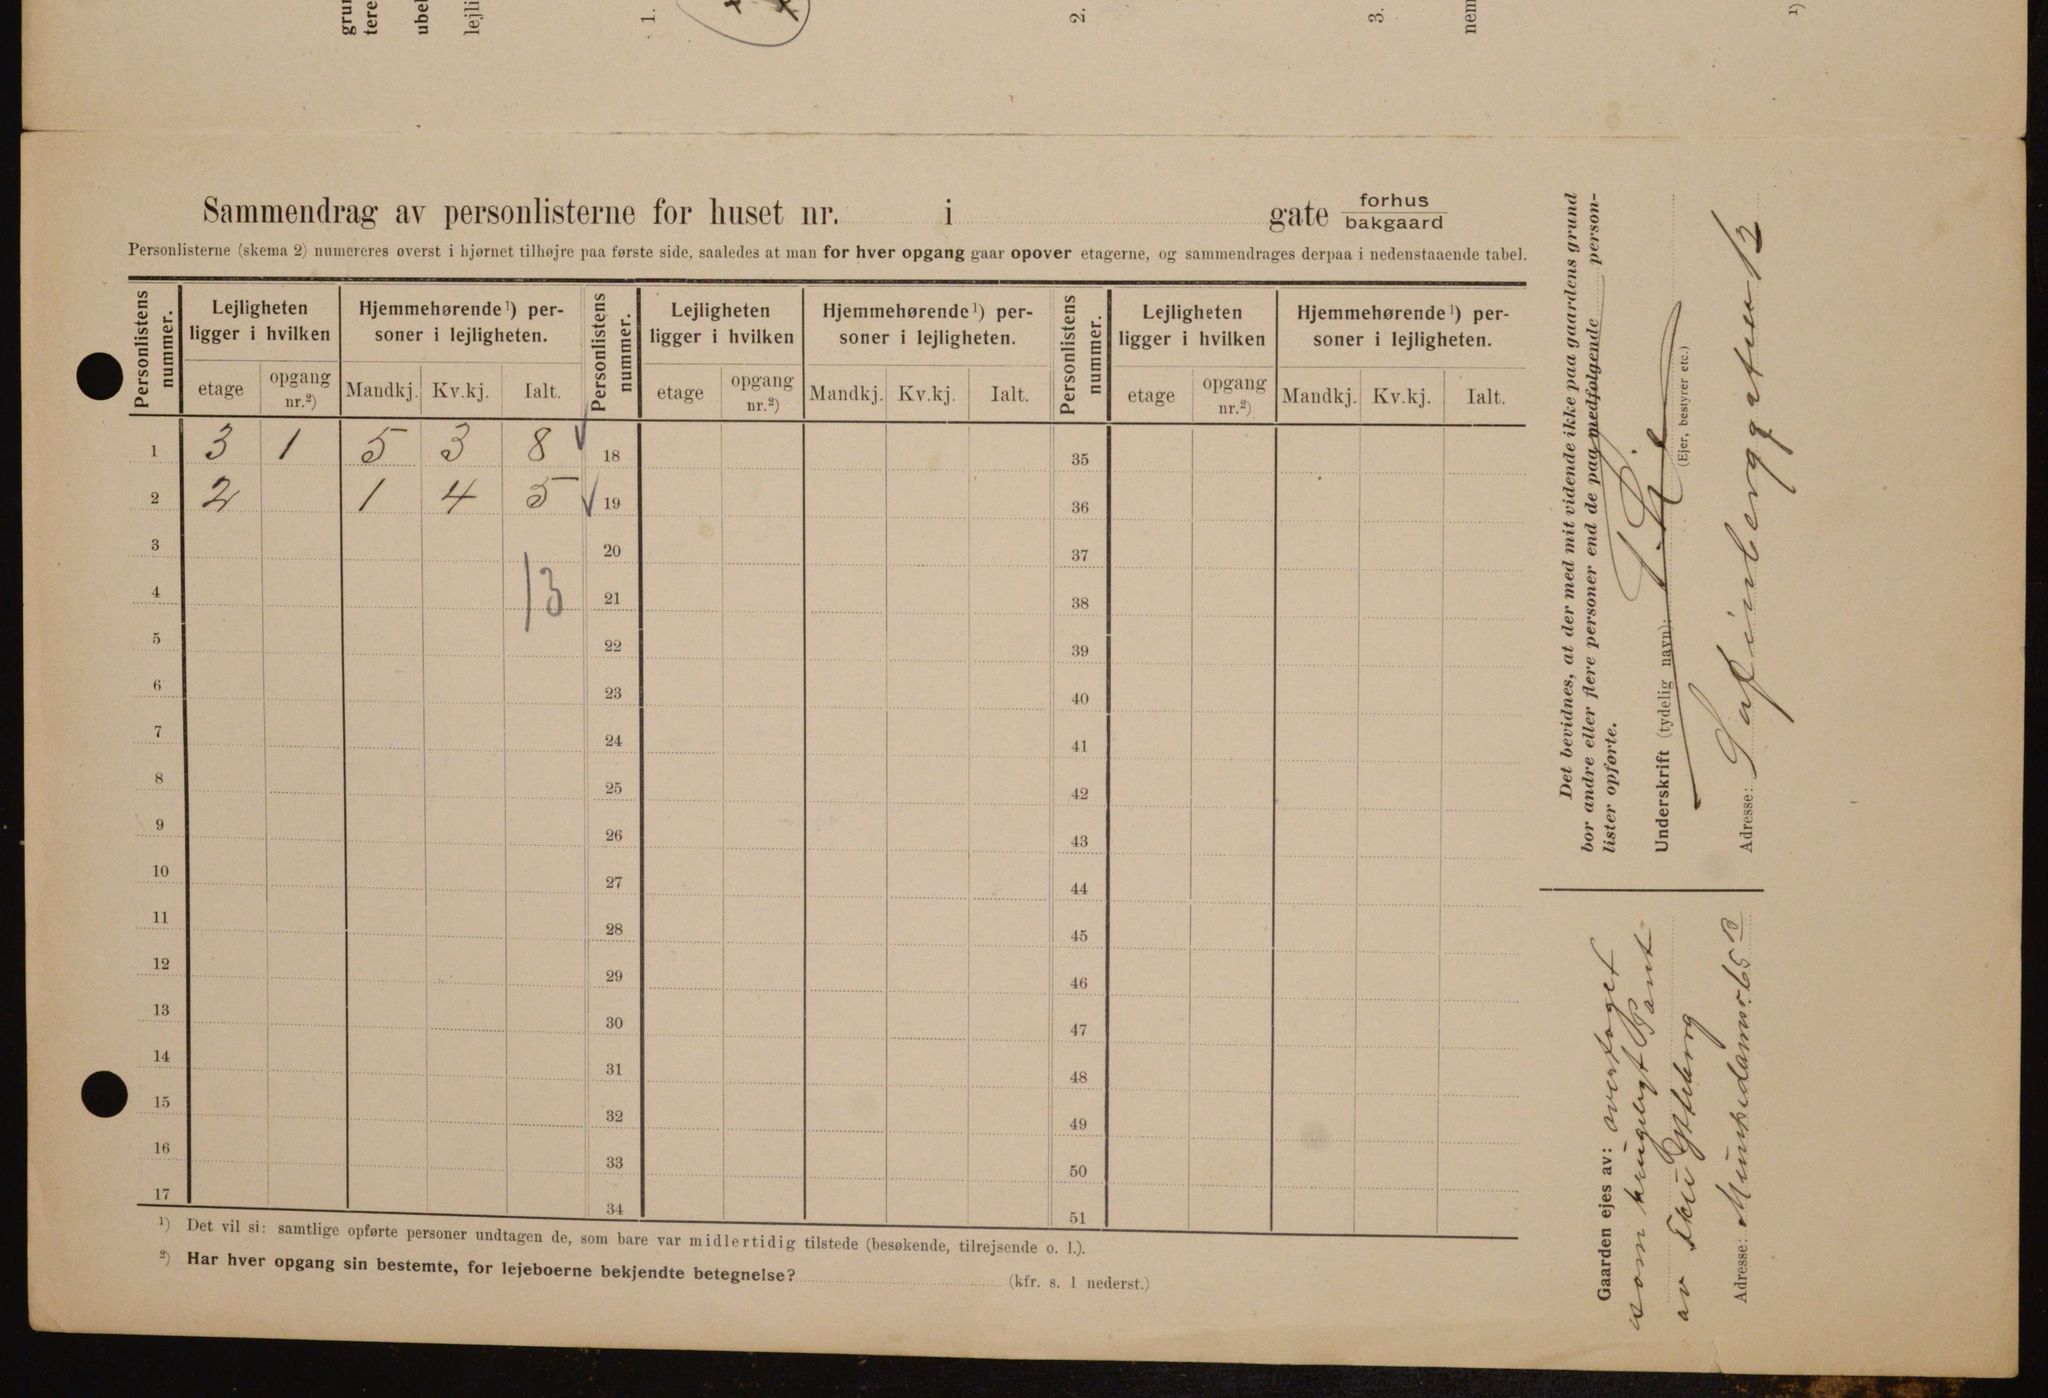 grun
tere
ubel
lejli
1.
2.
3.
nem
1)
Sammendrag av personlisterne for huset nr. i gate forhus
bakgaard
Personlisterne (skema 2) numereres øverst i hjørnet tilhøjre paa første side, saaledes at man for hver opgang gaar opover etagerne, og sammendrages derpaa i nedenstaaende tabel.
Personlistens nummer. Lejligheten ligger i hvilken Hjemmehørende¹) personer i lejligheten. Personlistens nummer. Lejligheten ligger i hvilken Hjemmehørende¹) personer i lejligheten. Personlistens nummer. Lejligheten ligger i hvilken Hjemmehørende¹) personer i lejligheten.
etage opgang nr.²) Mandkj. Kv.kj. Ialt. etage opgang nr.²) Mandkj. Kv.kj. Ialt. etage opgang nr.²) Mandkj. Kv.kj. Ialt.
1 3 1 5 3 8 18 35
2 2 1 4 5 19 36
3 20 37
4 13 21 38
5 22 39
6 23 40
7 24 41
8 25 42
9 26 43
10 27 44
11 28 45
12 29 46
13 30 47
14 31 48
15 32 49
16 33 50
17 34 51
¹) Det vil si: samtlige opførte personer undtagen de, som bare var midlertidig tilstede (besøkende, tilrejsende o. l.).
²) Har hver opgang sin bestemte, for lejeboerne bekjendte betegnelse? (kfr. s. 1 nederst.)
Det bevidnes, at der med mit vidende ikke paa gaardens grund
bor andre eller flere personer end de paa medfølgende person-
lister opførte.
Underskrift (tydelig navn):
(Ejer, bestyrer etc.)
Adresse: Sofienberggaten 12
Gaarden ejes av: overtaget
som Pant
av
Adresse: Munkedamsv. 65 B